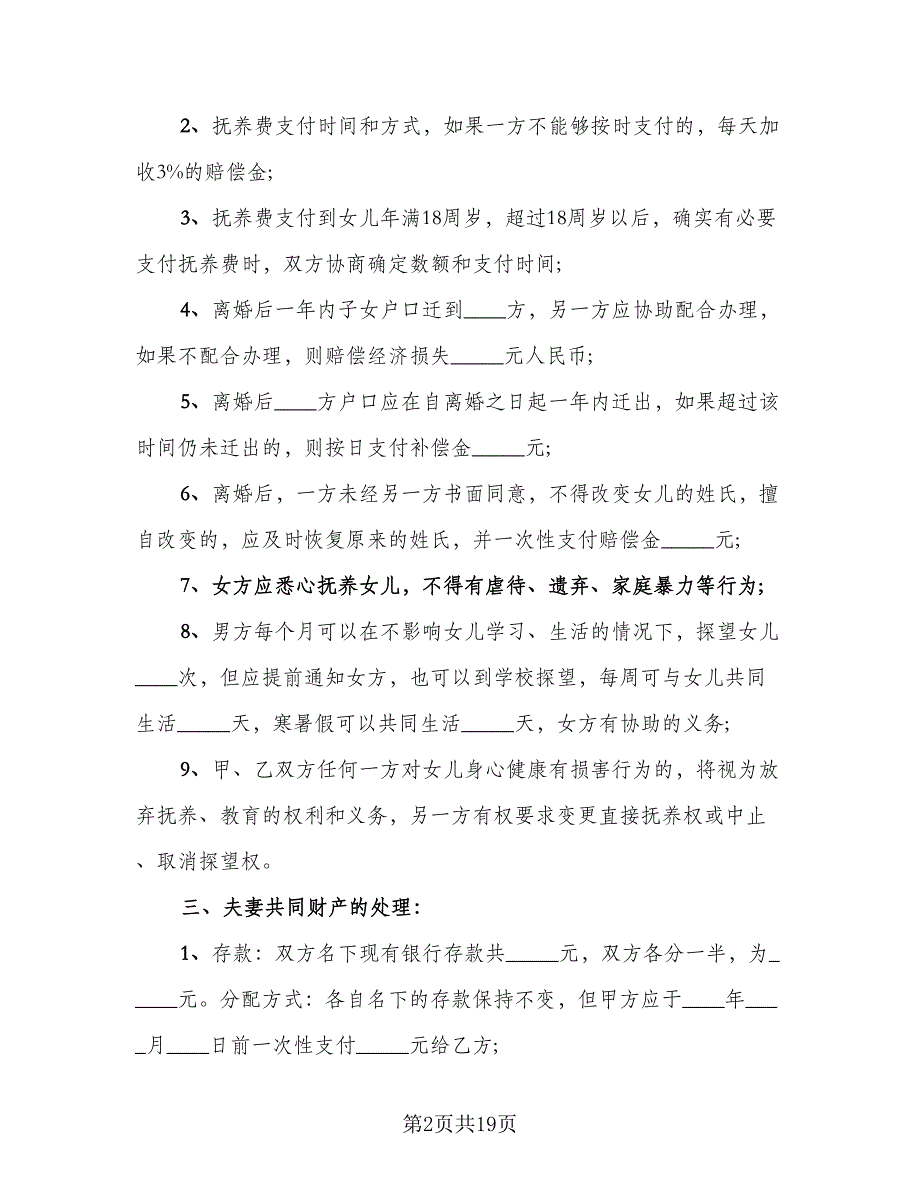 2、抚养费支付时间和方式，如果一方不能够按时支付的，每天加
收3%的赔偿金;
3、抚养费支付到女儿年满18周岁，超过18周岁以后，确实有必要
支付抚养费时，双方协商确定数额和支付时间;
4、离婚后一年内子女户口迁到____方，另一方应协助配合办理，
如果不配合办理，则赔偿经济损失_____元人民币;
5、离婚后____方户口应在自离婚之日起一年内迁出，如果超过该
时间仍未迁出的，则按日支付补偿金_____元;
6、离婚后，一方未经另一方书面同意，不得改变女儿的姓氏，擅
自改变的，应及时恢复原来的姓氏，并一次性支付赔偿金_____元;
7、女方应悉心抚养女儿，不得有虐待、遗弃、家庭暴力等行为;
8、男方每个月可以在不影响女儿学习、生活的情况下，探望女儿
____次，但应提前通知女方，也可以到学校探望，每周可与女儿共同
生活_____天，寒暑假可以共同生活_____天，女方有协助的义务;
9、甲、乙双方任何一方对女儿身心健康有损害行为的，将视为放
弃抚养、教育的权利和义务，另一方有权要求变更直接抚养权或中止
、取消探望权。
三、夫妻共同财产的处理：
1、存款：双方名下现有银行存款共_____元，双方各分一半，为_
____元。分配方式：各自名下的存款保持不变，但甲方应于____年___
_月____日前一次性支付_____元给乙方;
第2页共19页